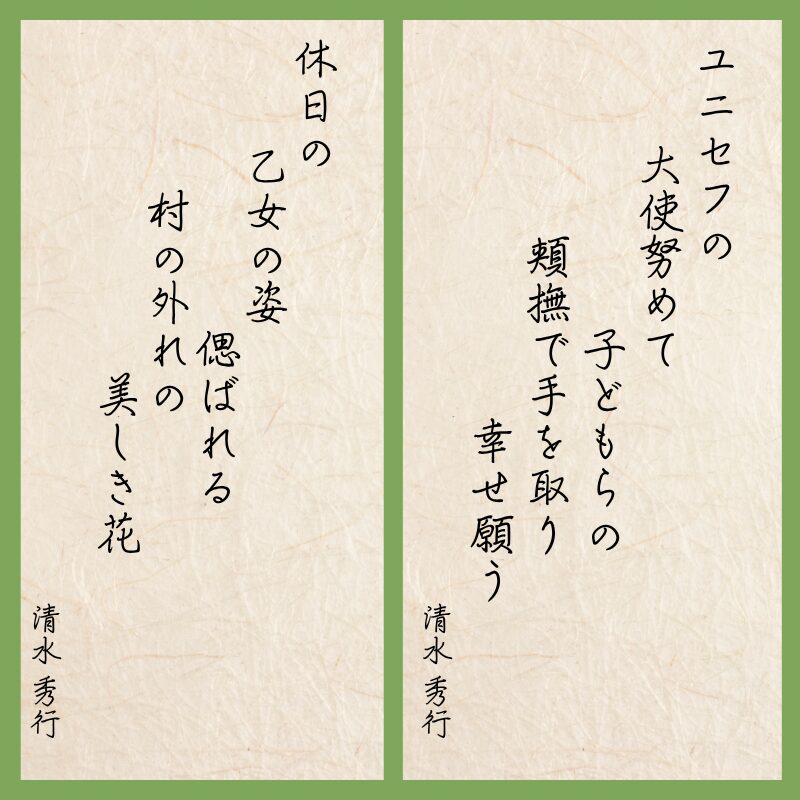 ユニセフの
大使努めて
子どもらの
頬撫で手を取り
幸せ願う
清水 秀行
休日の
乙女の姿
偲ばれる
村の外れの
美しき花
清水 秀行